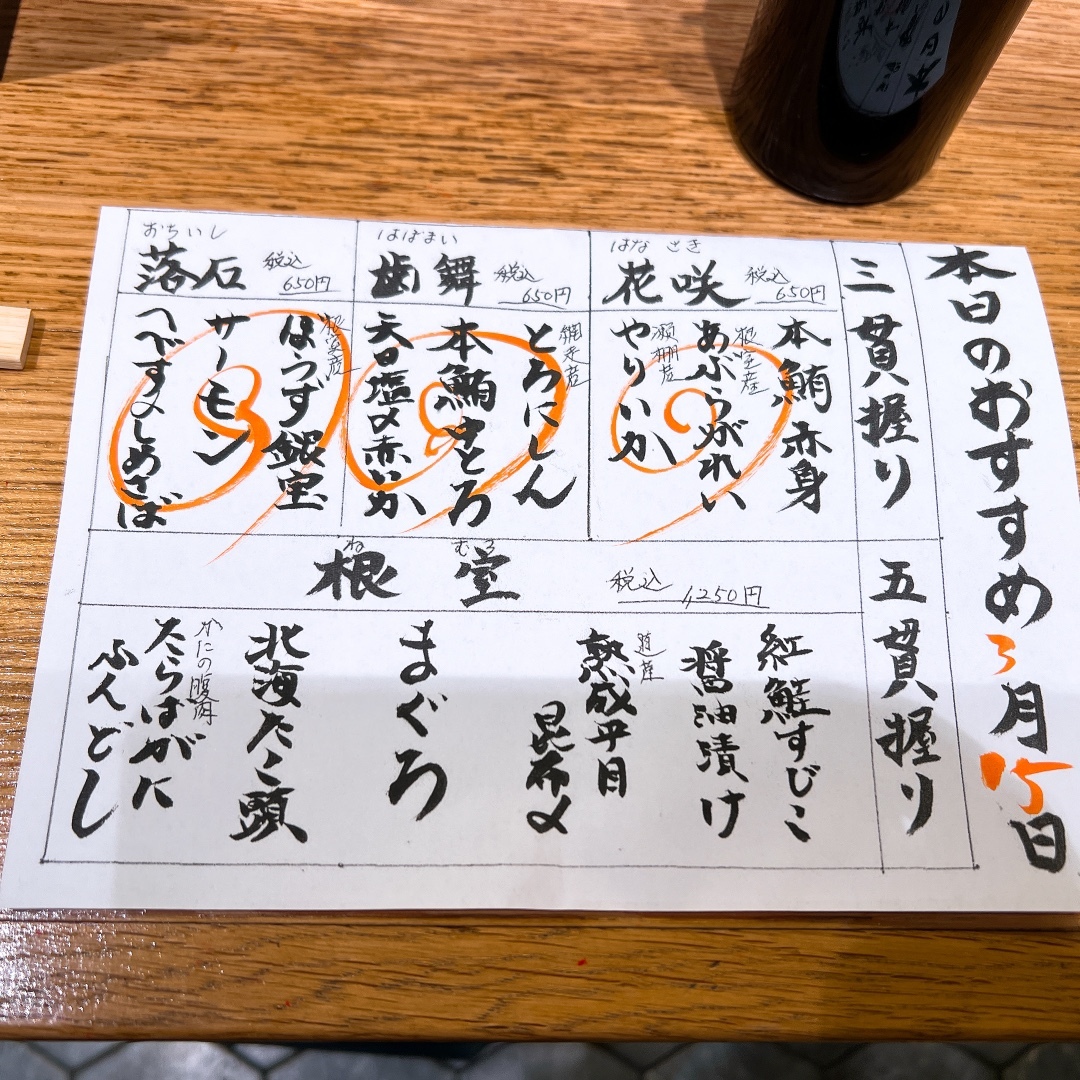 本日のおすすめ 3月15日
三貫握り
はなさき
花咲 税込 650円
本鮪赤身
根室産
あぶらがれい
瀬棚産
やりいか
はぼまい
歯舞 税込 650円
網走産
とろにしん
本鮪中とろ
天日塩〆赤いか
おちいし
落石 税込 650円
根室産
ほうず銀宝
サーモン
へべす〆しめさば
五貫握り
ねむろ
根室 税込 1,250円
紅鮭すじこ
醤油漬け
道産
熟成平目
昆布〆
まぐろ
北海たこ頭
かにの腹肉
たらばがに
ふんどし